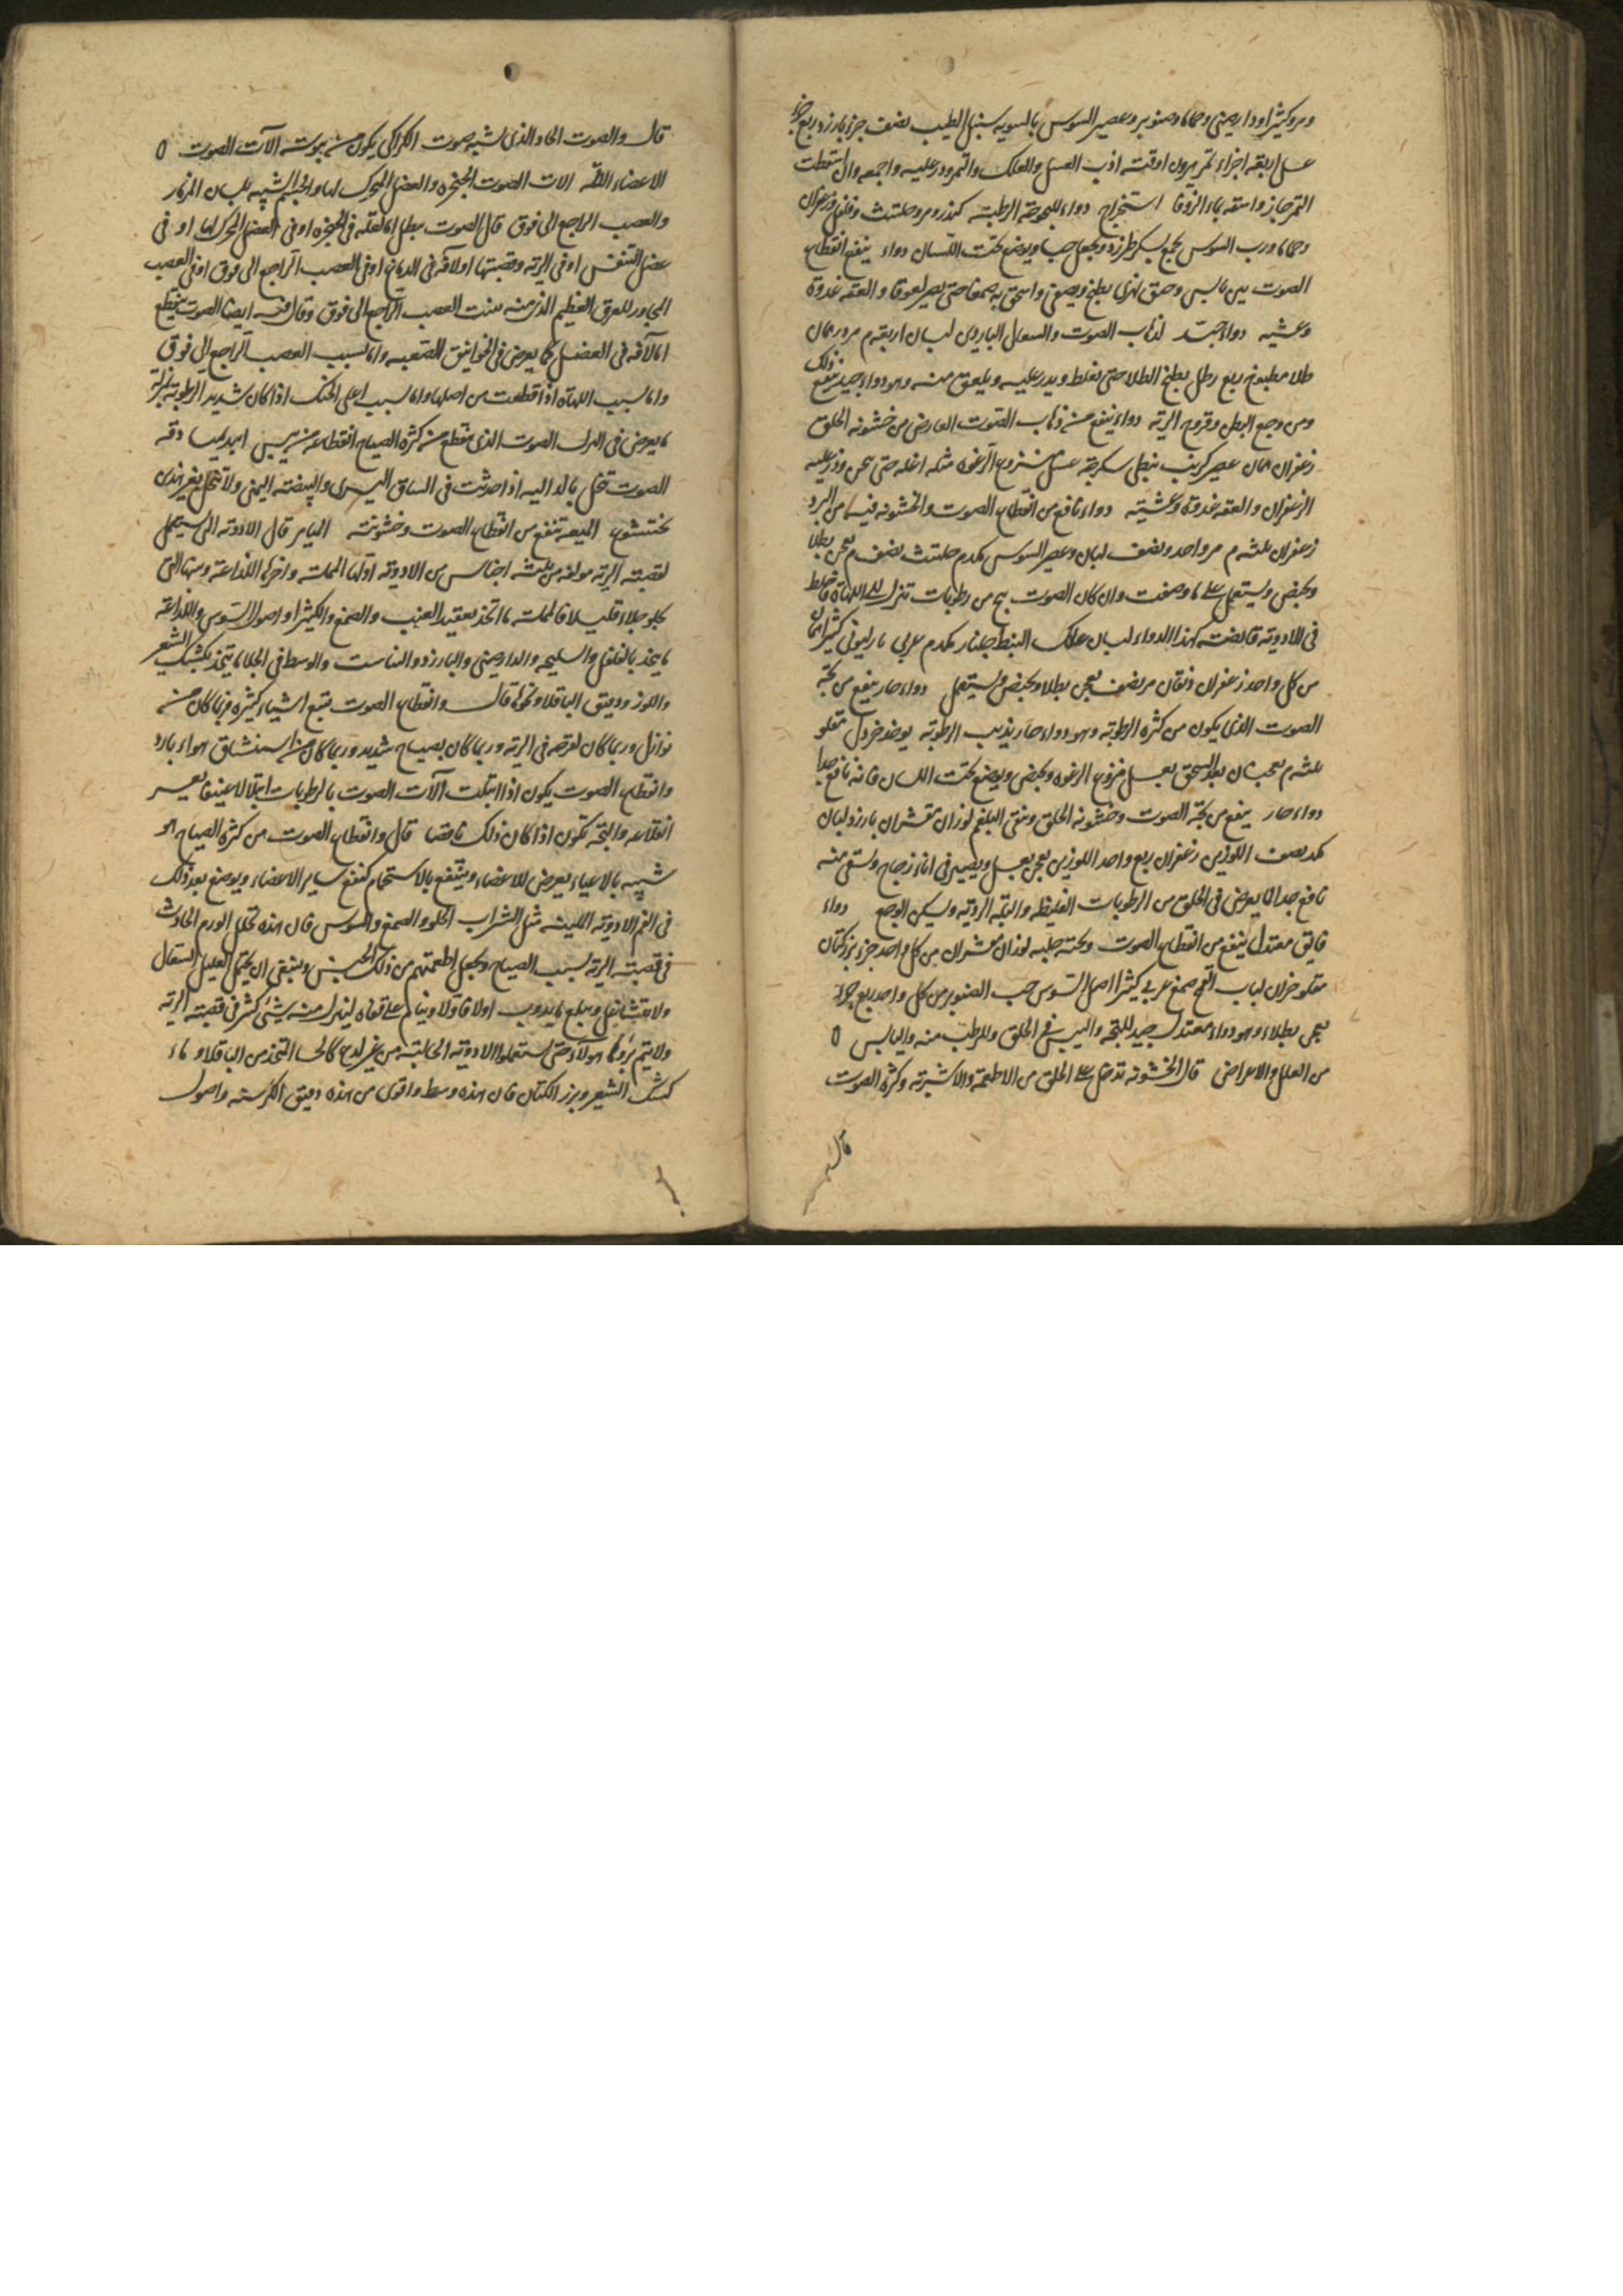 ومر وكثيرا ودارصيني وحماما وصنوبر وعصير السوس بالسويه سنبل الطيب نصف جزء بارزد ربع جزء
عسل اربعة اجزاء تمر اذب العسل والعلك والتمر وذر عليه واجمعه وان اسقطت
التمر جاز واسقه بماء الزوفا استخراج دواء للبحوحة الرطبة كندر ومر وحلتيث وفلفل وزعفران
وحماما ورب السوس يجمع بسكر طبرزد ويجعل حبا ويوضع تحت اللسان دواء ينفع انقطاع
الصوت تين يابس وحبق نهري يطبخ ويصفى واسحق به صمغا حتى يصير لعوقا والعقه غدوة
وعشيه دواء جيد لذهاب الصوت والسعال البارد لبان اربعة م مر درهمان
طلا مطبوخ ربع رطل يطبخ الطلا حتى يغلظ ويذر عليه ويلعق منه وهو دواء جيد ينفع ذلك
ومن وجع البطن وقروح الرية دواء ينفع من ذهاب الصوت العارض من خشونه الحلق
زعفران عصير كرنب نبطي سكرجة عسل منزوع الرغوه مثله اغله حتى يثخن وذر عليه
الزعفران والعقه غدوة وعشية دواء نافع من انقطاع الصوت والخشونه فيه من البرد
زعفران ثلثه م مر واحد ونصف لبان وعصير السوس حلتيث نصف م يعجن بطلا
ويستعمل على ما وصفت وان كان الصوت بح من رطوبات تنزل الى اللهاة فاخلط
في الادوية قابضة كهذا الدواء لبان علك النبط جلنار
من كل واحد زعفران مر نصف يعجن بطلا ويستعمل دواء حار ينفع من بحة
الصوت الذي يكون من كثره الرطوبة وهو دواء حار يذيب الرطوبة يوخذ خردل مقلو
ثلثه م بعد السحق بعسل منزوع الرغوه ويوضع تحت اللسان فانه نافع جدا
دواء حار ينفع من بحة الصوت وخشونه الحلق وينقى البلغم لوزان مقشران بارزد لبان
نصف اللوزين زعفران ربع واحد اللوزين يعجن بعسل ويصير في اناء زجاج ويسقى منه
نافع جدا لما يعرض في الحلق من الرطوبات الغليظه والبلة الردية ويسكن الوجع دواء
فايق معتدل ينفع من انقطاع الصوت وبحته حلبه لوزان مقشران من كل واحد جزء بزر كتان
مقلو جزان لباب القمح صمغ عربي كثيرا اصل السوس حب الصنوبر من كل واحد ربع جزء
يعجن بطلاء وهو دواء معتدل جيد للبحة واليبس في الحلق وللرطب منه واليابس ٥
من العلل والاعراض قال الخشونه تدخل على الحلق من الاطعمة والاشربة وكثره الصوت
قال
قال والصوت الحاد الذي شبيه بصوت الكراكي يكون من يبوسة آلات الصوت ٥
الاعضاء الالمه الات الصوت الحنجره والعضل المحرك لها والجسم الشبيه بلسان المزمار
والعصب الراجع الى فوق قال الصوت يبطل اما لعلة في الحنجره او في العضل المحرك لها او في
عضل التنفس او في الرية وقصبتها او لافة في الدماغ او في العصب الراجع الى فوق او في العصب
المجاور للعرق العظيم الذي منه ينبت العصب الراجع الى فوق وقال فيه ايضا الصوت ينقطع
اما لآفه في العضل كما يعرض في الخوانيق الصعبه واما بسبب العصب الراجع الى فوق
واما بسبب اللهاة اذا قطعت من اصلها واما بسبب اعلى الحنك اذا كان شديد الرطوبة بمنزلة
ما يعرض في النزل الصوت الذي ينقطع من كثره الصياح انقطاعه من يبس ابيديميا دقه
الصوت تنحل بالدوالي اذا حدثت في الساق اليسرى والبيضة اليمنى ولا تنحل بغير هذين
بختيشوع الميعه تنفع من انقطاع الصوت وخشونته الميامر قال الادوية التي تستعمل
لقصبة الرية مولفه من ثلثه اجناس من الادوية اولها المملسة واخرها اللذاعة ومنها التي
تجلو جلاء قليلا فالمملسه ما اتخذ بعقيد العنب والصمغ والكثيرا واصول السوس واللذاعة
ما يتخذ بالفلفل والسليخه والدارصيني والبارزد والوسط في الجلا ما يتخذ بكشك الشعير
واللوز ودقيق الباقلا ونحوها قال وانقطاع الصوت يتبع اشياء كثيره فربما كان من
نوازل وربما كان لقرحه في الرية وربما كان بصياح شديد وربما كان من استنشاق هواء بارد
وانقطاع الصوت يكون اذا ابتلت آلات الصوت بالرطوبات ابتلالا عنيفا يعسر
انقلاعه والبحة تكون اذا كان ذلك ناقصا قال وانقطاع الصوت من كثره الصياح هو
شبيه بالاعياء يعرض للاعضاء وينتفع بالاستحمام كنفع ساير الاعضاء ويوضع بعد ذلك
في الفم الادوية اللينه مثل الشراب الحلو والصمغ والسوس فان هذه تحلل الورم الحادث
في قصبة الرية بسبب الصياح ويجعل اطعمتهم من ذلك الجنس وينبغي ان يحتمل العليل السعال
ولا يتشاغل ويبلع ما يذوب اولا فاولا وينام على قفاه لينزل منه شيء كثير في قصبة الرية
ولا يتم برؤ هولاء حتى يستعملوا الادوية الجالبة من غير لذع كالحسا المتخذ من الباقلا وماء
كشك الشعير وبزر الكتان فان هذه وسط واقوى من هذه دقيق الكرسنه واصول